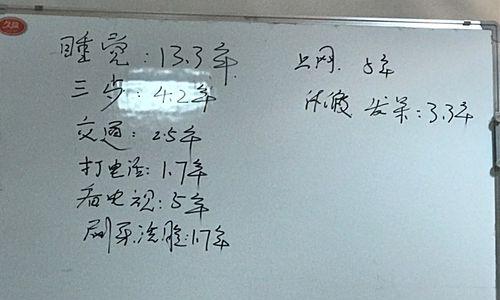 睡觉:13.3年
三步:4.2年
交通:2.5年
打电话:1.7年
看电视:5年
刷牙.洗脸:1.7年
上网.5年
休假 发呆:3.3年